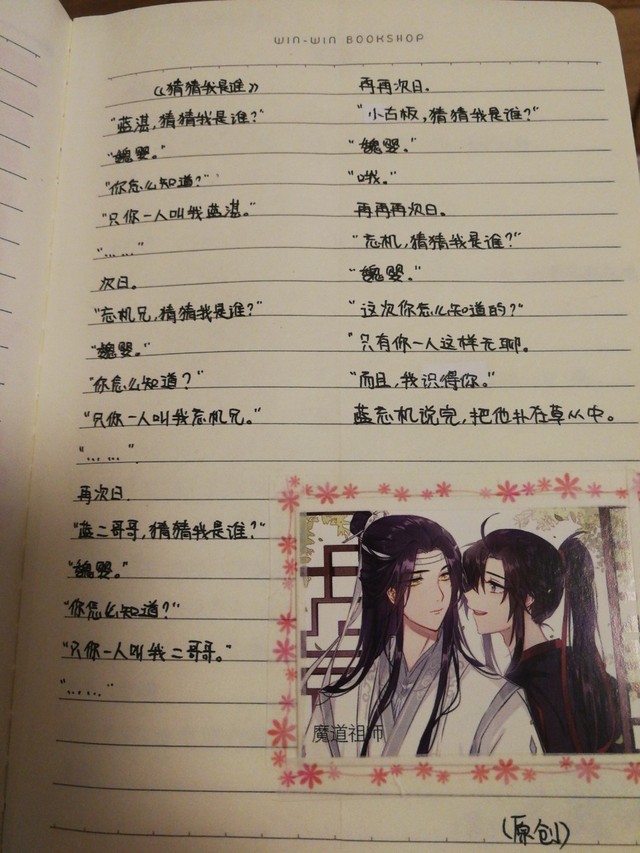 WIN-WIN BOOKSHOP
《猜猜我是谁》
"蓝湛,猜猜我是谁?"
"魏婴。"
"你怎么知道?"
"只你一人叫我蓝湛。"
"……"
次日。
"忘机兄,猜猜我是谁?"
"魏婴。"
"你怎么知道?"
"只你一人叫我忘机兄。"
"……"
再次日.
"蓝二哥哥,猜猜我是谁?"
"魏婴。"
"你怎么知道?"
"只你一人叫我二哥哥。"
"……"
再再次日.
"小古板,猜猜我是谁?"
"魏婴。"
"哦。"
再再再次日。
"忘机,猜猜我是谁?"
"魏婴。"
"这次你怎么知道的?"
"只有你一人这样无聊。
"而且,我识得你。"
蓝忘机说完,把他扑在草丛中。
魔道祖师
(原创)